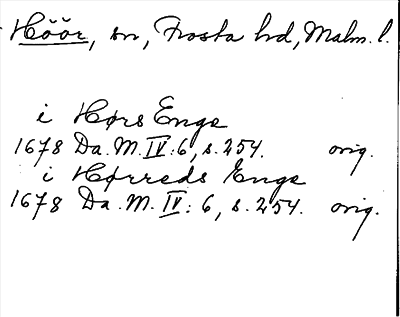 Höör, sn, Frosta hd, Malm. l.
i Hørs Enge
1678 Da. M. IV: 6, s. 254. orig.
i Hørreds Enge
1678 Da. M. IV: 6, s. 254. orig.